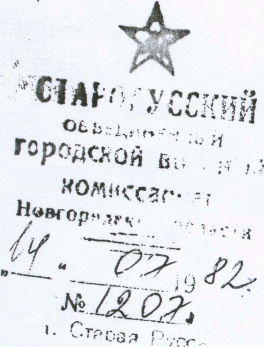 СТАРОРУССКИЙ
объединенный
городской военный
комиссариат
Новгородской области
"14" 07 1982
№ 1207
г. Старая Русса